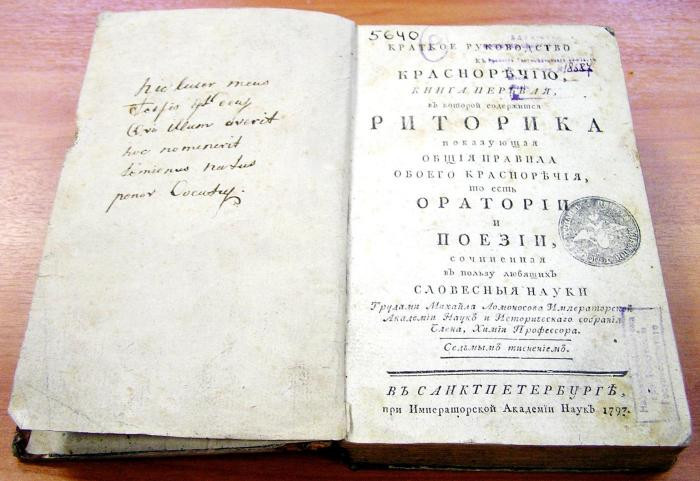 hic liber meus
Testis deus
illum
hoc nomenerit
natus
5640
КРАТКОЕ РУКОВОДСТВО
КЪ
КРАСНОРѢЧІЮ,
КНИГА ПЕРЬВАЯ,
въ которой содержится
РИТОРИКА
показующая
ОБЩІЯ ПРАВИЛА
ОБОЕГО КРАСНОРѢЧІЯ,
то есть
ОРАТОРІИ
И
ПОЕЗІИ,
сочиненная
въ пользу любящихъ
СЛОВЕСНЫЯ НАУКИ
Трудами Михайла Ломоносова Императорской
Академіи Наукъ и Историческаго собранія
Члена, Химіи Профессора.
Седьмымъ тисненіемъ.
ВЪ САНКТПЕТЕРБУРГѢ,
при Императорской Академіи Наукъ 1797.